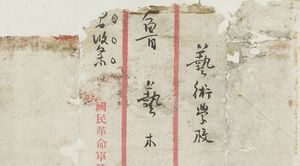 藝術學校
魯藝木
收条
國民革命軍